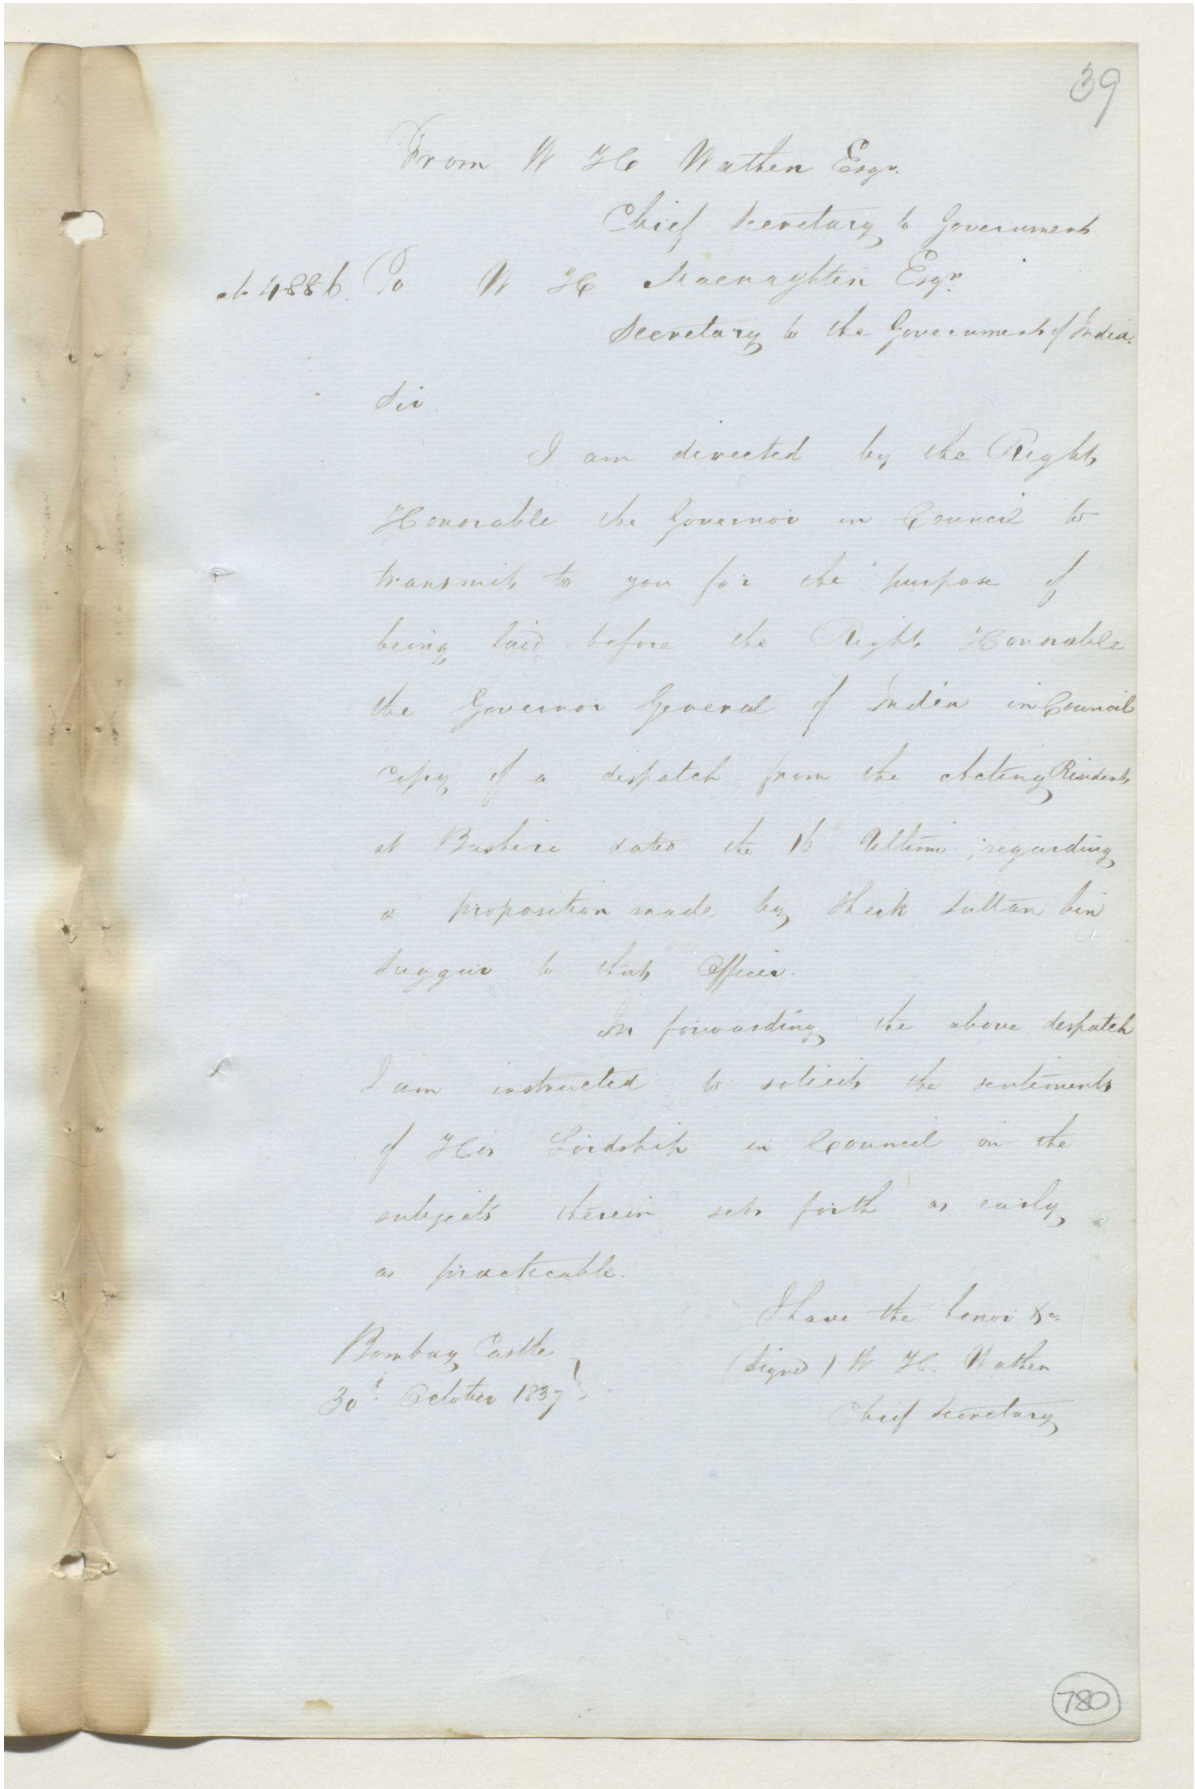 39
From W H Wathen Esqr.
Chief Secretary to Government
No 4886. To W H Macnaghten Esqr.
Secretary to the Government of India.
Sir
I am directed by the Right
Honorable the Governor in Council to
transmit to you for the purpose of
being laid before the Right Honorable
the Governor General of India in Council
copy of a dispatch from the Acting Resident
at Bushire dated the 16 Ultimo, regarding
a proposition made by Sheik Sultan bin
Suggur to that Officer.
In forwarding the above despatch
I am instructed to solicit the sentiments
of His Lordship in Council on the
subjects therein set forth as early
as practicable.
I have the honor &ca
Bombay Castle
(Signed) W H. Wathen
30th October 1837
Chief Secretary
780